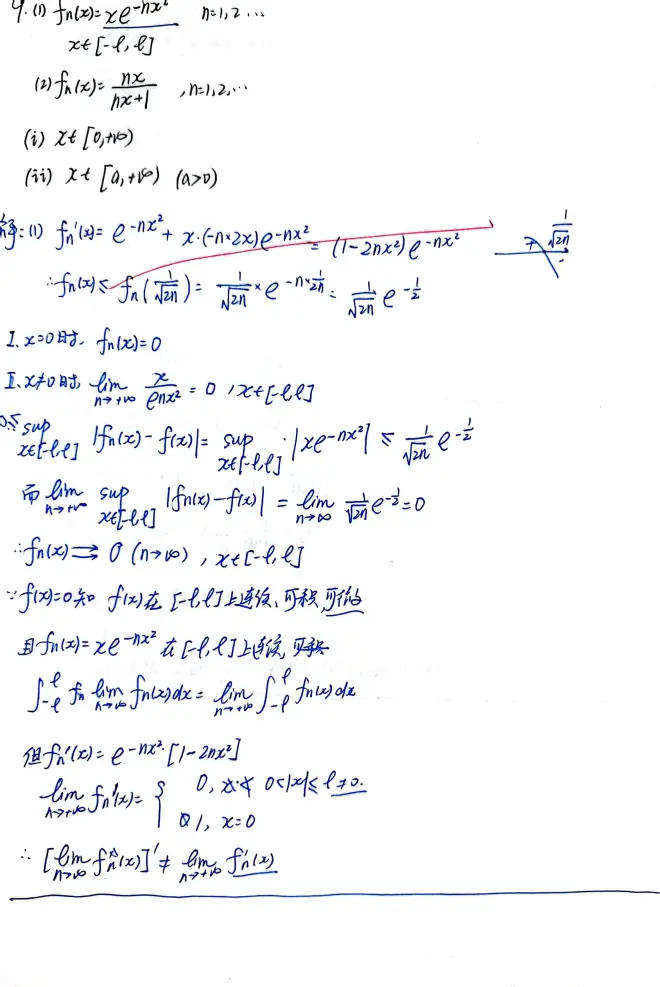 9.(1) fₙ(x)=xe^{-nx²} n=1,2…
x∈[-l,l]
(2) fₙ(x)=\frac{nx}{nx+1} ,n=1,2,…
(i) x∈[0,+∞)
(ii) x∈[a,+∞) (a>0)
解:(1) fₙ'(x)= e^{-nx²}+x·(-n×2x)e^{-nx²}=(1-2nx²)e^{-nx²}
∴fₙ(x)≤fₙ(\frac{1}{\sqrt{2n}})=\frac{1}{\sqrt{2n}}×e^{-n×\frac{1}{2n}}=\frac{1}{\sqrt{2n}}e^{-\frac{1}{2}}
+ \frac{1}{\sqrt{2n}} -
I、x=0时, fₙ(x)=0
II、x≠0时, \lim_{n→+∞} \frac{x}{e^{nx²}}=0 ,x∈[-l,l]
0≤\sup_{x∈[-l,l]}|fₙ(x)-f(x)|=\sup_{x∈[-l,l]}·|xe^{-nx²}|≤\frac{1}{\sqrt{2n}}e^{-\frac{1}{2}}
而\lim_{n→+∞} \sup_{x∈[-l,l]}|fₙ(x)-f(x)|=\lim_{n→∞}\frac{1}{\sqrt{2n}}e^{-\frac{1}{2}}=0
∴fₙ(x)⇉0 (n→∞) ,x∈[-l,l]
∵f(x)=0知 f(x)在[-l,l]上连续、可积,可微
且fₙ(x)=xe^{-nx²}在[-l,l]上连续,可积
∫_{-l}^{l} \lim_{n→∞}fₙ(x)dx=\lim_{n→+∞}∫_{-l}^{l}fₙ(x)dx
但fₙ'(x)=e^{-nx²}·[1-2nx²]
\lim_{n→+∞}fₙ'(x)={ 0, 0<|x|≤l≠0.
1, x=0
∴[\lim_{n→∞}fₙ(x)]'≠\lim_{n→+∞}fₙ'(x)